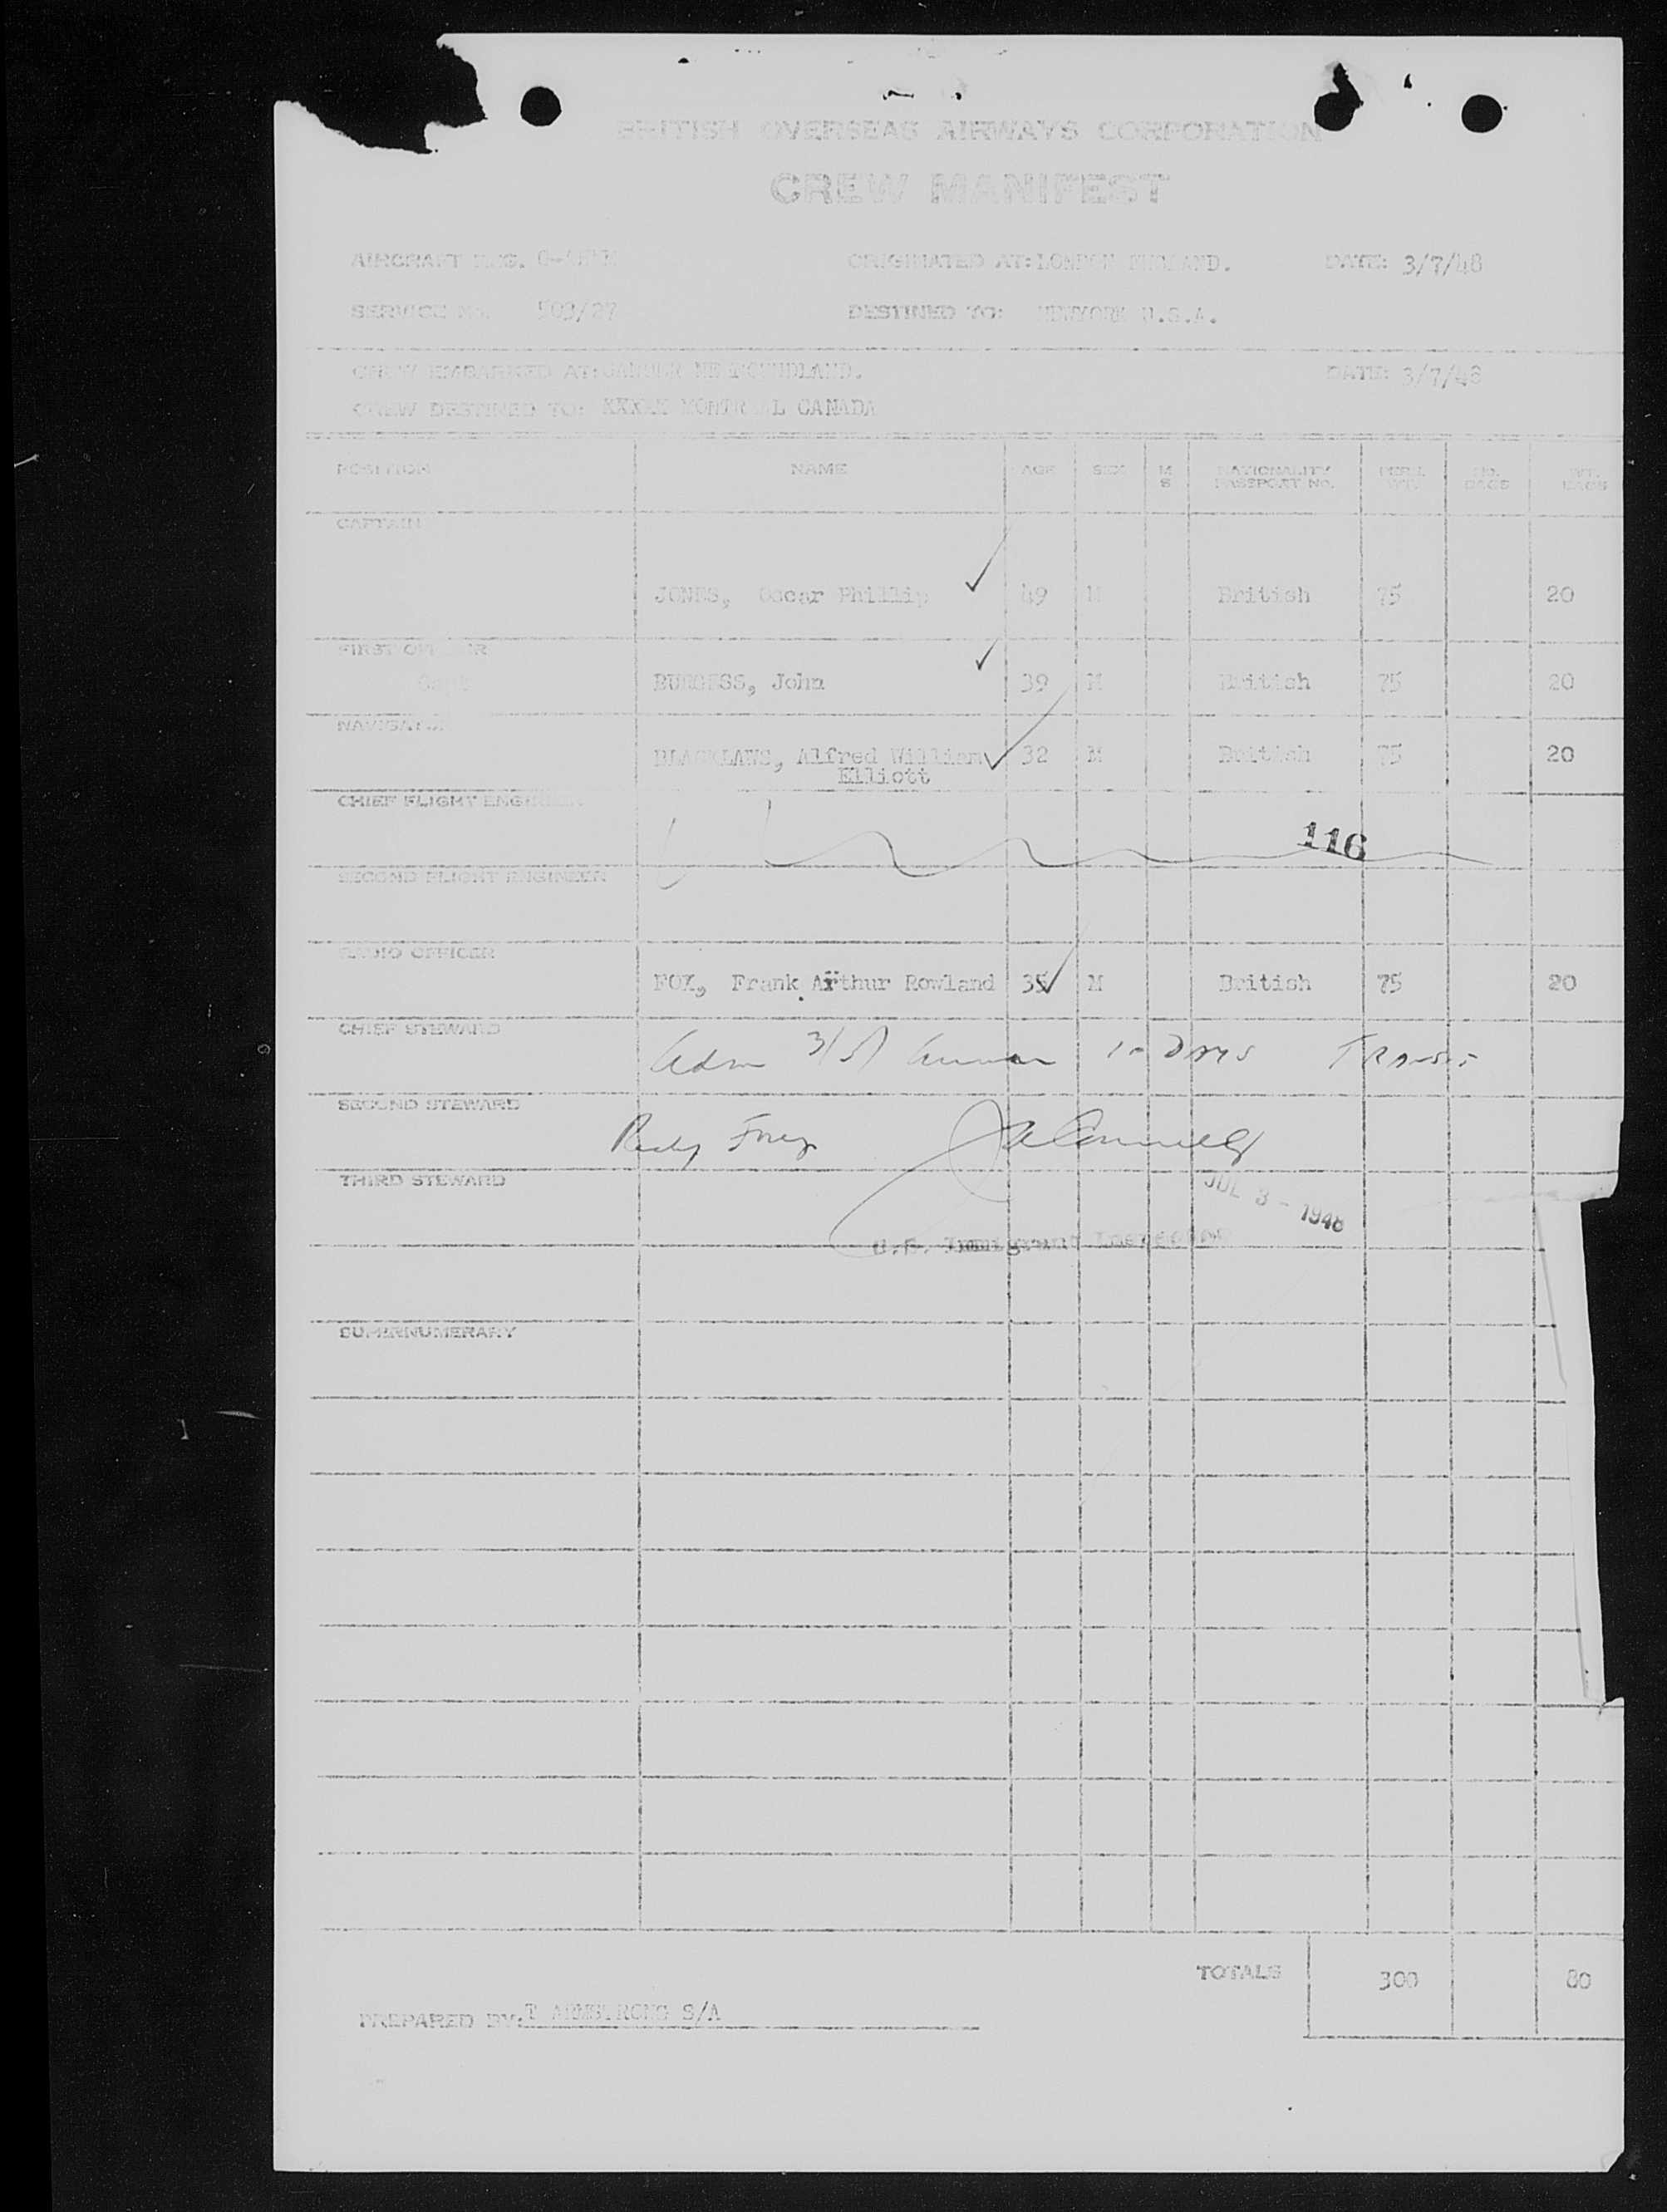 BRITISH OVERSEAS AIRWAYS CORPORATION
CREW MANIFEST
AIRCRAFT REG. ORIGINATED AT: LONDON ENGLAND. DATE: 3/7/48
SERVICE No. 503/27 DESTINED TO: NEWYORK U.S.A.
CREW EMBARKED AT: GANDER NEWFOUNDLAND. DATE: 3/7/48
CREW DESTINED TO: MONTREAL CANADA
POSITION NAME AGE SEX M S NATIONALITY PASSPORT NO. PERS. WT. NO. BAGS WT. BAGS
CAPTAIN
JONES, Oscar Phillip 49 M British 75 20
FIRST OFFICER
Capt BURGESS, John 39 M British 75 20
NAVIGATOR
BLACKLAWS, Alfred William 32 M British 75 20
Elliott
CHIEF FLIGHT ENGINEER
116
SECOND FLIGHT ENGINEER
RADIO OFFICER
FOX, Frank Arthur Rowland 35 M British 75 20
CHIEF STEWARD
Adm 3(5) 10 DAYS
SECOND STEWARD
THIRD STEWARD
JUL 3 - 1948
U.S. Immigrant Inspector
SUPERNUMERARY
TOTALS 300 80
PREPARED BY: T ARMSTRONG S/A